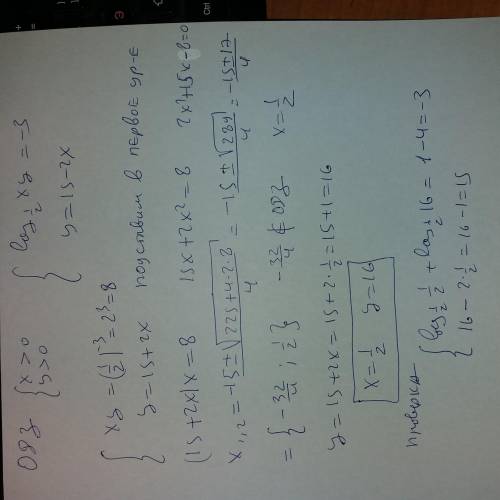 ОДЗ { x>0 y>0 { log_{1/2} xy = -3 y=15-2x
{ xy = (1/2)^{-3} = 2^3 = 8
y=15+2x подставим в первое ур-е
(15+2x)x=8 15x+2x²=8 2x²+15x-8=0
x_{1,2} = -15±√(225+4·2·8)/4 = -15±√289/4 = -15±17/4
= {-32/4; 1/2} -32/4 ∉ ОДЗ x=1/2
y=15+2x=15+2·1/2=15+1=16
x=1/2 y=16
проверка { log_{1/2} 1/2 + log_{1/2} 16 = 1-4=-3
16-2·1/2=16-1=15